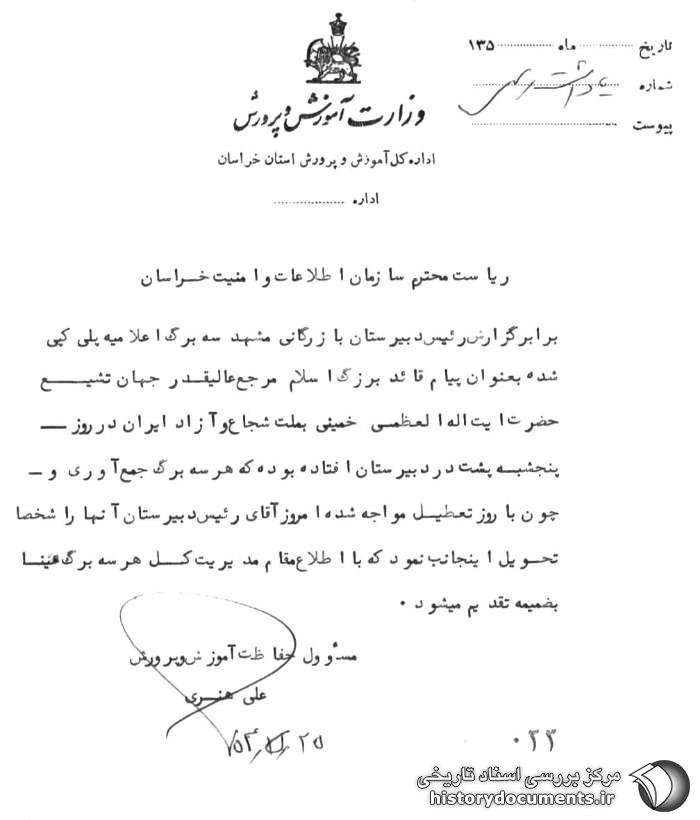 تاریخ ............ ماه ............ ۱۳۵
شماره
پیوست ............
وزارت آموزش و پرورش
اداره کل آموزش و پرورش استان خراسان
اداره ............
ریاست محترم سازمان اطلاعات و امنیت خراسان
برابر گزارش رئیس دبیرستان بازرگانی مشهد سه برگ اعلامیه پلی کپی
شده بعنوان پیام قائد بزرگ اسلام مرجع عالیقدر جهان تشیع
حضرت ایت اله العظمی خمینی بملت شجاع و آزاد ایران در روز ـــ
پنجشبه پشت در دبیرستان افتاده بوده که هر سه برگ جمع آوری و ـ
چون با روز تعطیل مواجه شده امروز آقای رئیس دبیرستان آنها را شخصا
تحویل اینجانب نمود که با اطلاع مقام مدیریت کل هر سه برگ عینا
بضمیمه تقدیم میشود .
مسؤول حفاظت آموزش و پرورش
علی هنری
۰۳۳
مرکز بررسی اسناد تاریخی
historydocuments.ir